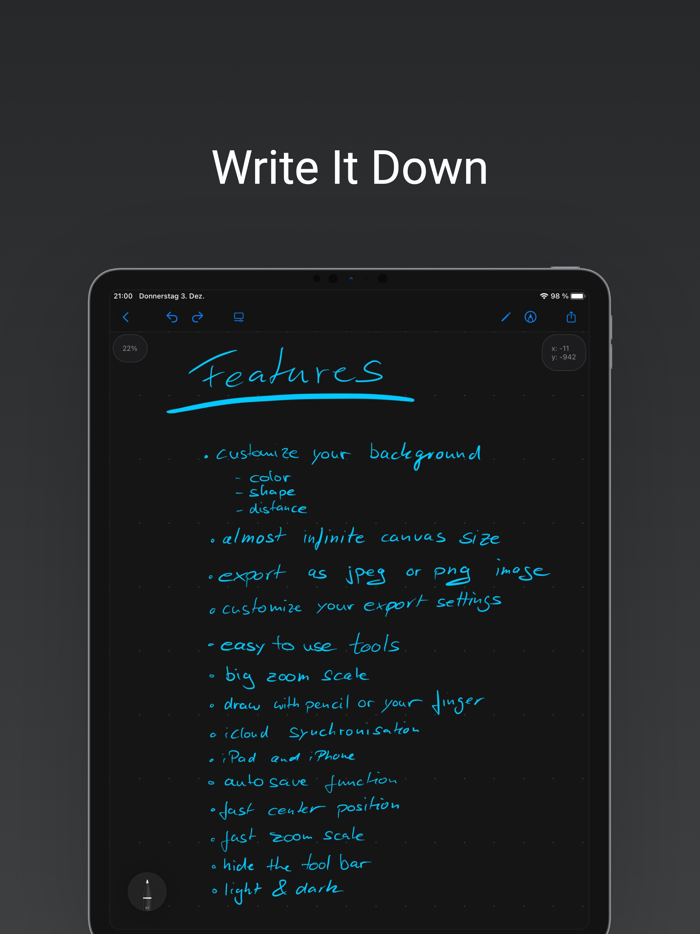 Write It Down
21:00 Donnerstag 3. Dez. 98 %
22%
x: -11
y: -942
Features
• customize your background
- color
- shape
- distance
• almost infinite canvas size
• export as jpeg or png image
• customize your export settings
• easy to use tools
• big zoom scale
• draw with pencil or your finger
• icloud synchronisation
• iPad and iPhone
• auto save function
• fast center position
• fast zoom scale
• hide the tool bar
• light & dark